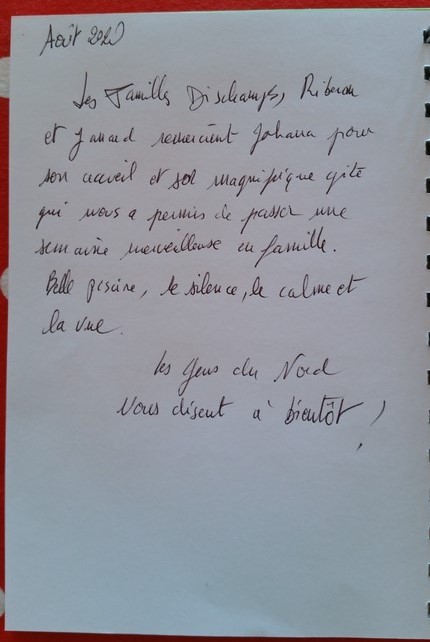 Août 2020
Les Familles Dischamps, Riberon
et remercient Johana pour
son accueil et son magnifique gîte
qui nous a permis de passer une
semaine merveilleuse en famille.
Belle piscine, le silence, le calme et
la vue.
Les Gens du Nord
Vous disent à bientôt !